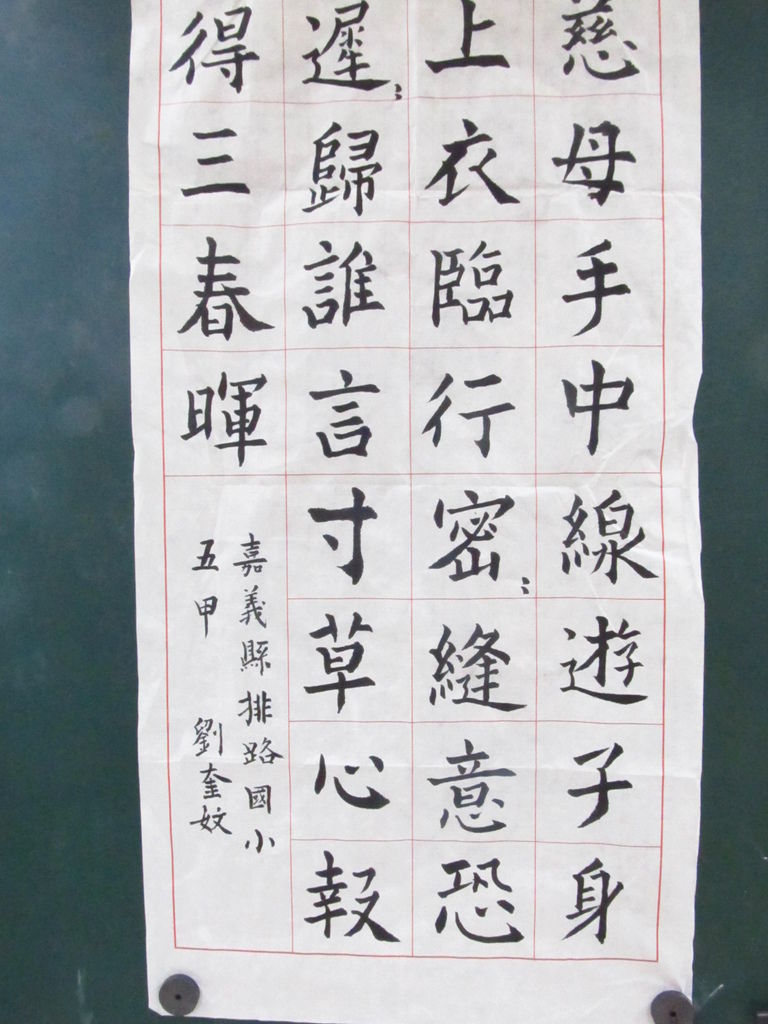 慈母手中線遊子身
上衣臨行密〻縫意恐
遲〻歸誰言寸草心報
得三春暉
嘉義縣排路國小
五甲 劉奎妏